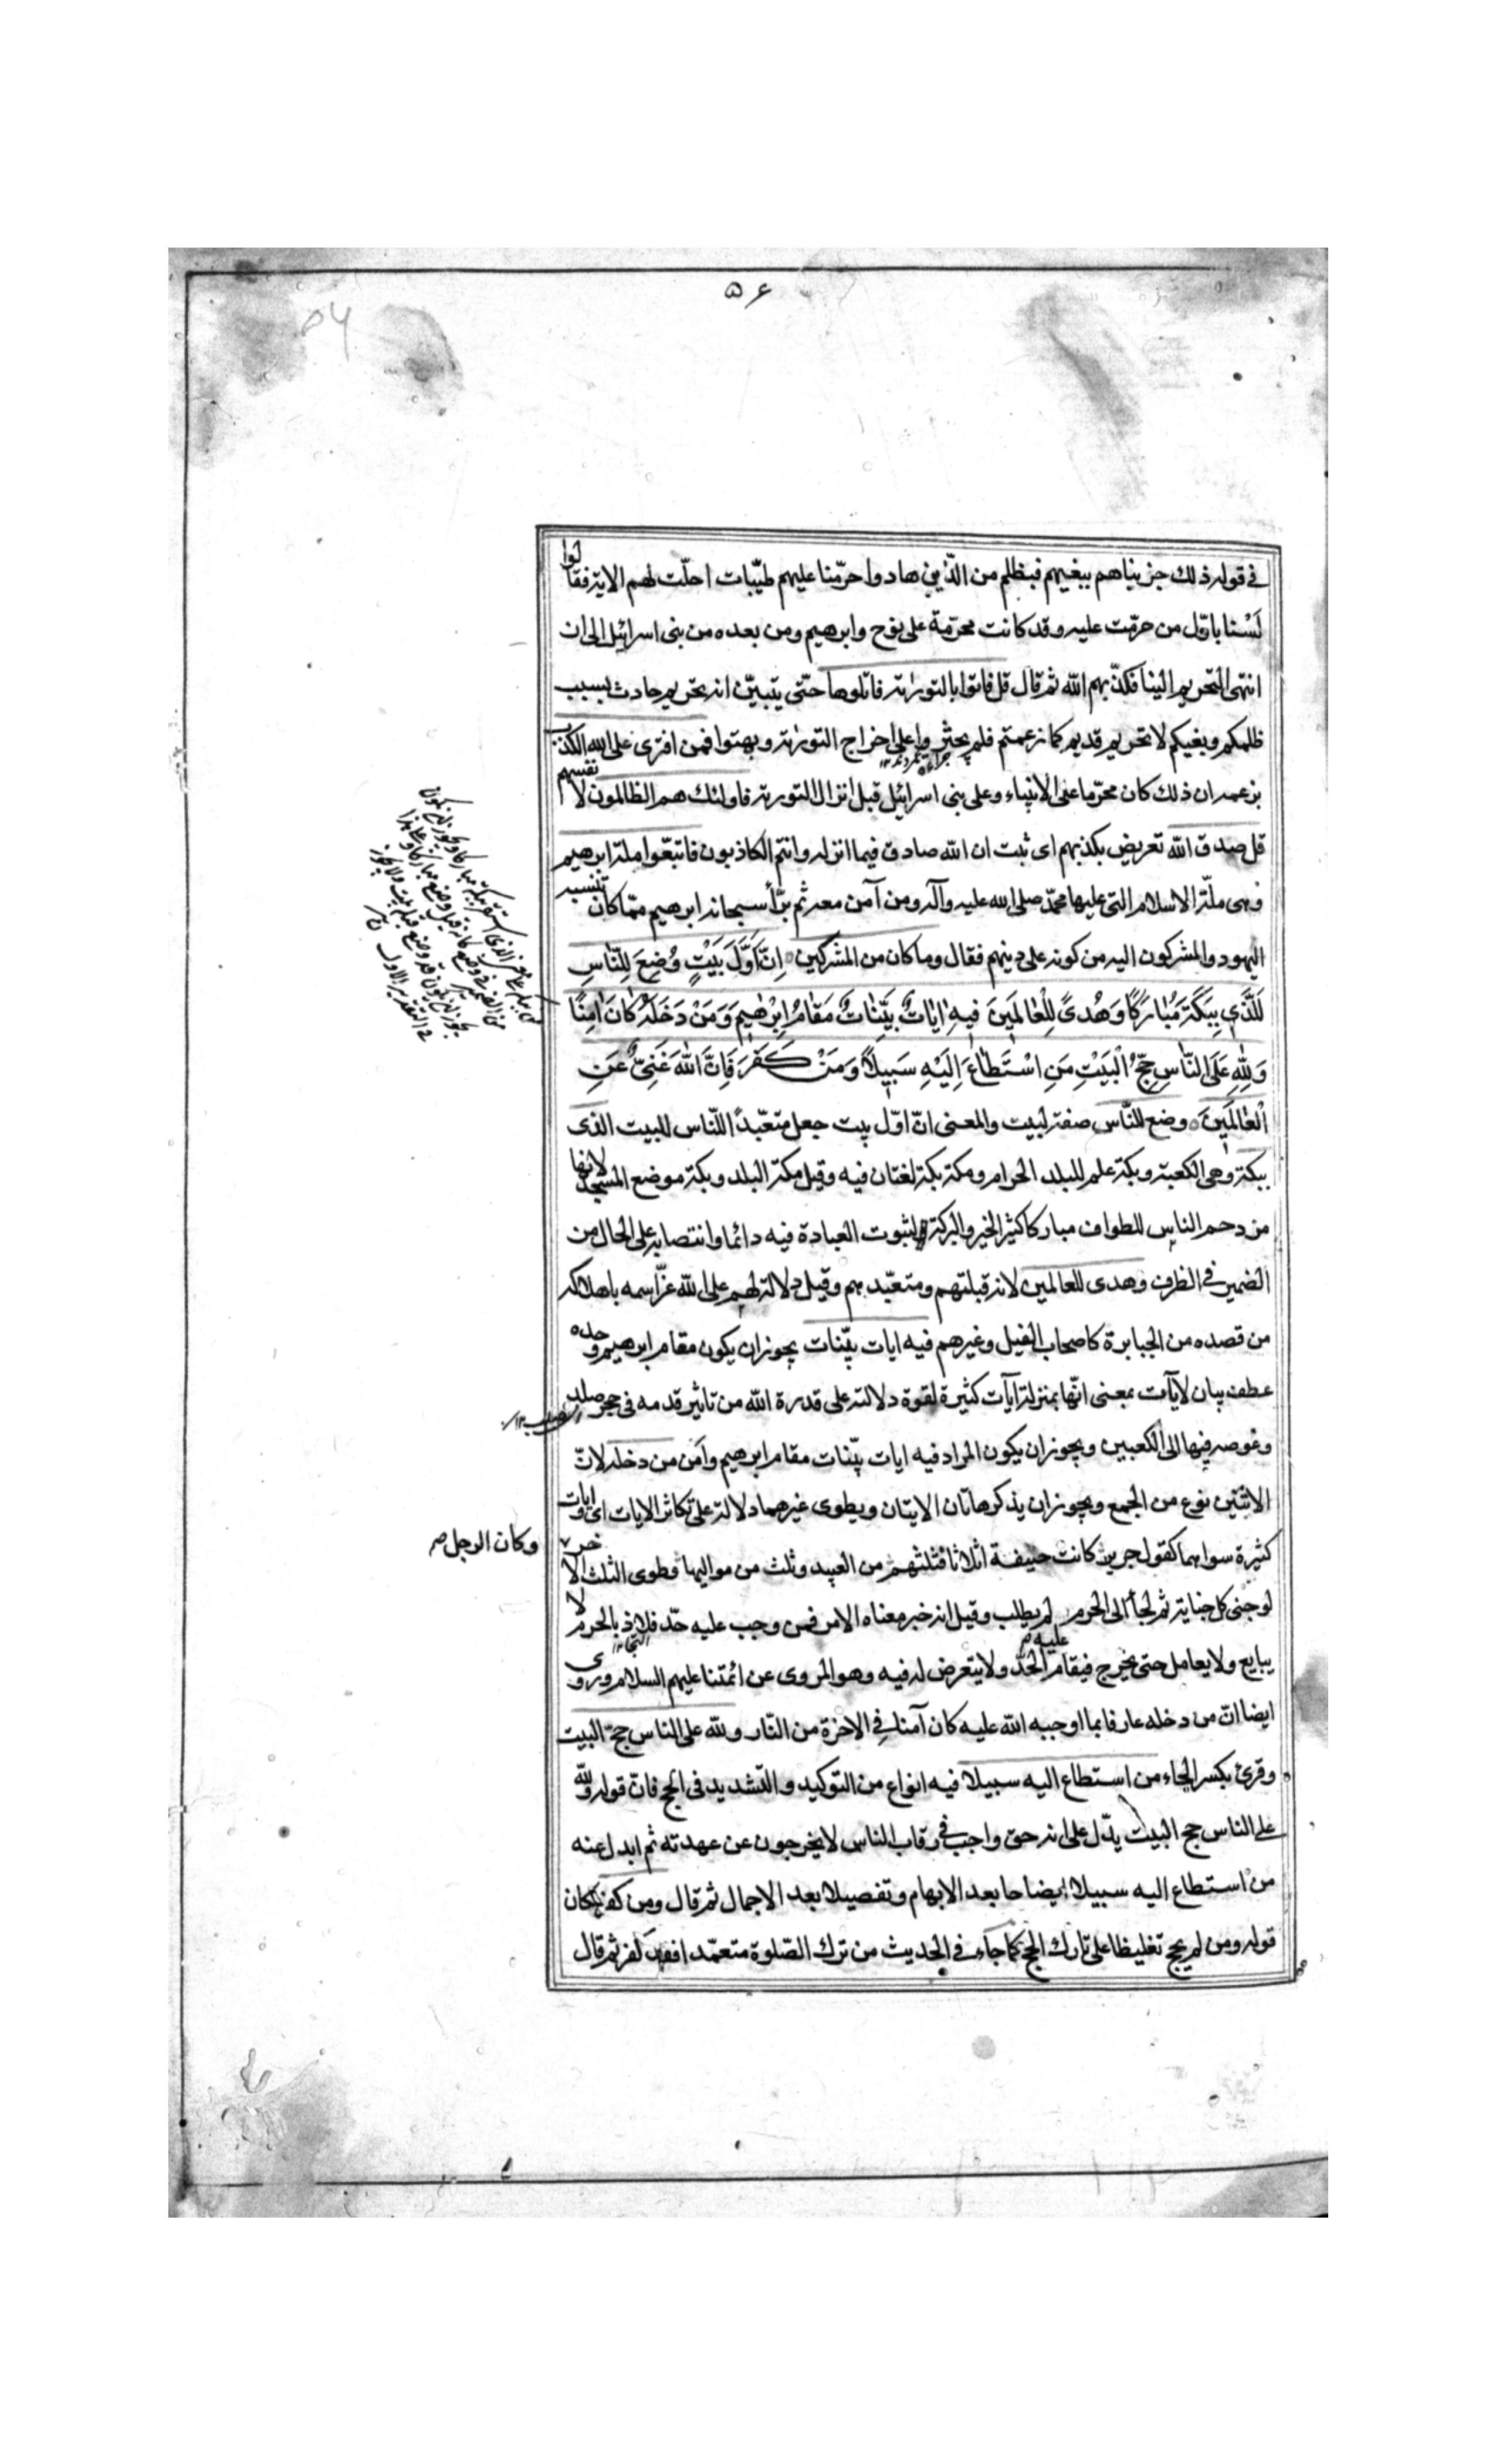 ۵۶
في قوله ذلك جزيناهم ببغيهم فبظلم من الذين هادوا حرّمنا عليهم طيّبات احلّت لهم الاية فقالوا
لَسْنا باوّل من حرّمت عليه وقد كانت محرّمة على نوح وابرهيم ومن بعده من بنى اسرائيل الى ان
انتهى التحريم الينا فكذّبهم الله ثم قال قل فاتوا بالتورٰية فاتلوها حتّى يتبيّن انه تحريم حادث بسبب
ظلمكم وبغيكم لا تحريم قديم كما زعمتم فلم يجترؤا على اخراج التورٰية وبهتوا فمن افترى على الله الكذب
بزعمه ان ذلك كان محرّما على الانبياء وعلى بنى اسرائيل قبل انزال التورية فاولئك هم الظالمون لانفسهم
قل صدق الله تعريض بكذبهم اى ثبت ان الله صادق فيما انزله وانتم الكاذبون فاتبعّوا ملة ابرهيم
وهى ملّة الاسلام التى عليها محمّد صلى الله عليه وآله ومن آمن معه ثم برّأ سبحانه ابرهيم ممّا كان تنسبه
اليهود والمشركون اليه من كونه على دينهم فقال وما كان من المشركين اِنَّ اَوَّلَ بَيْتٍ وُضِعَ لِلنّاسِ
لَلَّذي بِبَكَّةَ مُبٰارَكًا وَهُدىً لِلْعٰالَمينَ فيهِ اٰيٰاتٌ بَيِّنٰاتٌ مَقٰامُ اِبْرٰهيمَ وَمَنْ دَخَلَهُ كٰانَ اٰمِنًا
وَلِلّٰهِ عَلَى النّاسِ حِجُّ الْبَيْتِ مَنِ اسْتَطٰاعَ اِلَيْهِ سَبيلًا وَمَنْ كَفَرَ فَاِنَّ اللّٰهَ غَنِيٌّ عَنِ
الْعٰالَمينَ وضع للنّاس صفة لبيت والمعنى انّ اوّل بيت جعل متعّبداً للنّاس للبيت الذى
ببكة وهى الكعبة وبكة علم للبلد الحرام ومكة بكة لغتان فيه وقيل مكة البلد وبكة موضع المسجد لانها
مزدحم الناس للطواف مباركا كثير الخير والبركة لثبوت العبادة فيه دائما وانتصابه على الحال من
الضمير فى الظرف وهدى للعالمين لانه قبلتهم ومتعبّدهم وقيل دلالة لهم على الله عزّ اسمه باهلاكه
من قصده من الجبابرة كاصحاب الفيل وغيرهم فيه ايات بيّنات يجوز ان يكون مقام ابرهيم وحده
عطف بيان لآيات بمعنى انّها بمنزلة آيات كثيرة لقوة دلالته على قدرة الله من تاثير قدمه فى حجر صلد
وغوصه فيها الى الكعبين ويجوز ان يكون المراد فيه ايات بيّنات مقام ابرهيم وآمن من دخله لانّ
الاثنين نوع من الجمع ويجوز ان يذكر هاتان الايتان ويطوى غيرهما دلالة على تكاثر الايات اى وايات
كثيرة سواهما كقول جرير كانت حنيفة اثلاثا فثلثهم من العبيد وثلث من مواليها فطوى الثلث الاخر
وكان الرجل
لو جنى كل جناية ثم لجأ الى الحرم لم يطلب وقيل انه خبر معناه الامر فمن وجب عليه حدّ فلاذ بالحرم لا
يبايع ولا يعامل حتى يخرج فيقام عليه الحدّ ولا يتعرض له فيه وهو المروى عن ائمّتنا عليهم السلام وروى
ايضا انّ من دخله عارفا بما اوجبه الله عليه كان آمنا فى الاخرة من النّار ولله على الناس حجّ البيت
وقرئ بكسر الحاء من استطاع اليه سبيلا فيه انواع من التوكيد والتشديد فى الحج فانّ قوله ولله
على الناس حج البيت يدّل على انه حق واجب فى رقاب الناس لا يخرجون عن عهدته ثم ابدل عنه
من استطاع اليه سبيلا ايضاحا بعد الابهام وتفصيلا بعد الاجمال ثم قال ومن كفر مكان
قوله ومن لم يحج تغليظا على تارك الحج كما جاء فى الحديث من ترك الصّلوة متعمّدا فقد كفر ثم قال